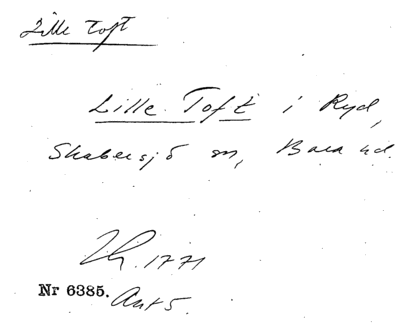 Lille Toft
Lille Toft i Ryd,
Skabersjö sn, Bara hd.
Lh. 1771
Nr 6385. Akt 5.